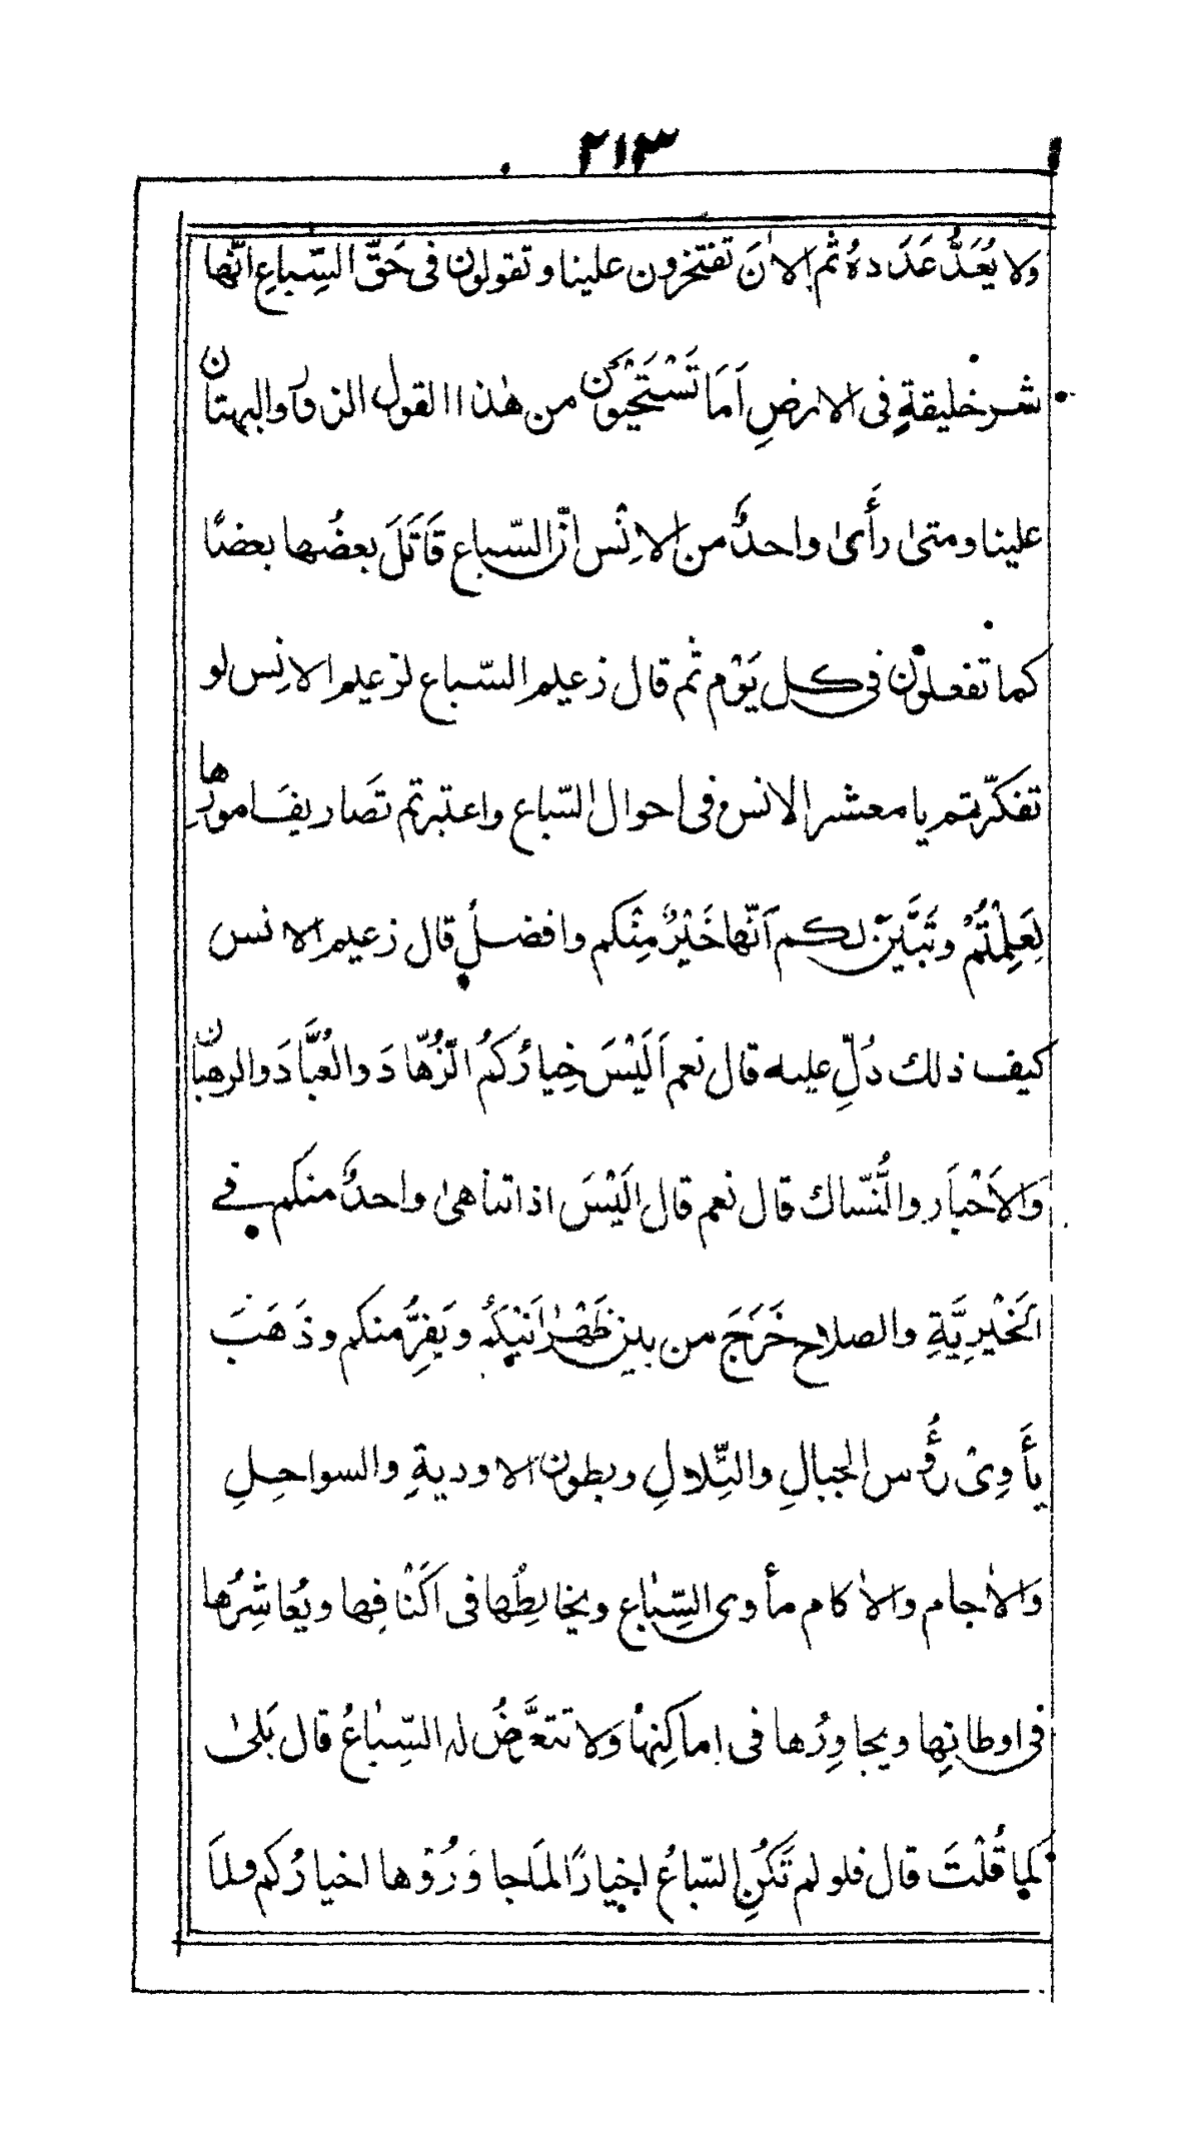 ٢١٣
ولا يُعَدُّ عَدَدهُ ثم الاٰنَ تفتخرون علينا وتقولون فى حَقِّ السِّباعِ انّها
شر خليقةٍ فى الارضِ اَمَا تَسْتَحْيُوْنَ من هٰذا القول الزور والبهتان
علينا ومتىٰ رأَىٰ واحدٌ من الانْس انّ السّباع قَاتَلَ بعضُها بعضًا
كما تفعلون فى كل يَوْم ثم قال زعيم السّباع لزعيم الانِس لو
تفكّرتم يا معشر الانس فى احوال السّباع واعتبرتم تَصاريفَ امورِها
لَعَلِمْتُمْ وتَبَيَّنَ لكم اَنّها خَيْرٌ مِنْكم وافضلُ قال زعيم الانس
كيف ذلك دُلِّ عليه قال نعم اَلَيْسَ خِيارُكمُ الزُّهّادَ والعُبَّادَ والرهبان
وَالاَحْبَار والنُّسّاك قال نعم قال اَلَيْسَ اذا تناهىٰ واحدٌ منكم فى
الخَيْرِيَّةِ والصلاح خَرَجَ من بين ظَهْرَانَيْكُم ويَفِرُّ منكم وذَهَبَ
يأَوِىْ رؤُس الجبالِ والتِّلالِ وبطون الاوديةِ والسواحِلِ
وَالاٰجام والاٰكام مأوى السِّبَاع ويخالِطُها فى اَكْنَافِها ويُعاشِرُها
فى اوطانِها ويجاوِرُها فى اماكِنِها وَلا تتعَرَّضُ له السِّباعُ قال بَلىٰ
كما قُلْتَ قال فلو لم تَكُنِ السّباعُ اخيارًا لمَا جاوَرُوْها اخيارُكم ولمَا